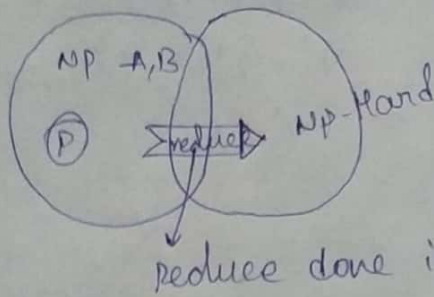 NP -A,B
P
reduce
NP-Hard
reduce done i